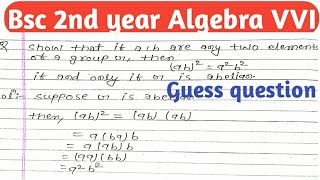 Bsc 2nd year Algebra VVI
Show that if a,b are any two elements
of a group G, then
(ab)² = a²b²
if and only if G is abelian
Guess question
suppose G is abelian
then, (ab)² = (ab) (ab)
= a(ba)b
= a(ab)b
= (aa)(bb)
= a²b²